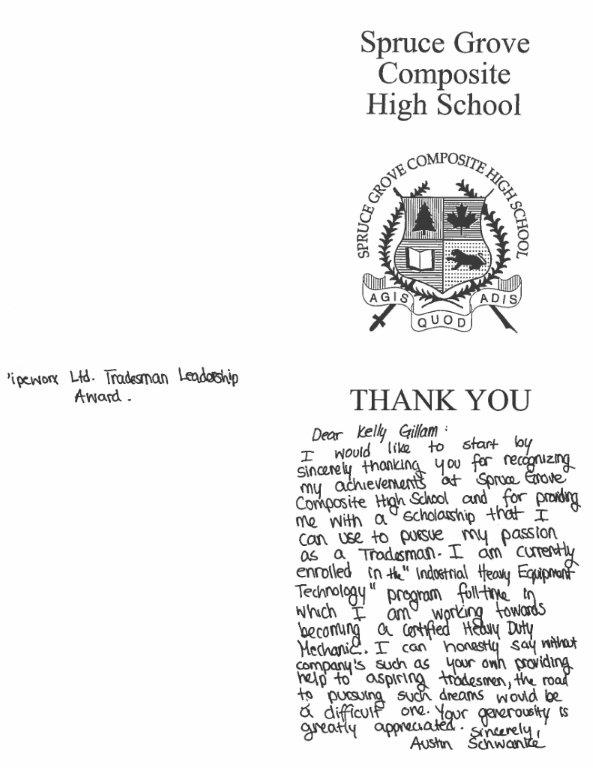 Spruce Grove
Composite
High School
SPRUCE GROVE COMPOSITE HIGH SCHOOL
AGIS QUOD ADIS
'ipeworx Ltd. Tradesman Leadership
Award.
THANK YOU
Dear Kelly Gillam:
I would like to start by
sincerely thanking you for recognizing
my achievements at Spruce Grove
Composite High School and for providing
me with a scholarship that I
can use to pursue my passion
as a Tradesman. I am currently
enrolled in the "Industrial Heavy Equipment
Technology" program full-time in
which I am working towards
becoming a certified Heavy Duty
Mechanic. I can honestly say without
company's such as your own providing
help to aspiring tradesmen, the road
to pursuing such dreams would be
a difficult one. Your generousity is
greatly appreciated. Sincerely,
Austin Schwanke